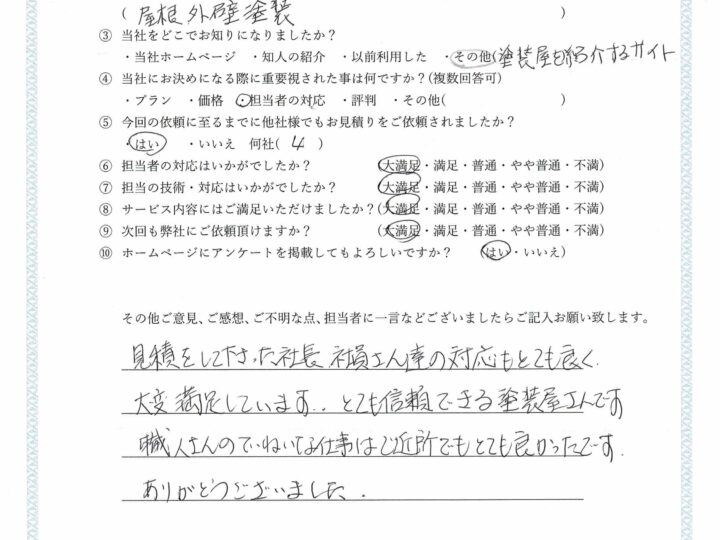 (屋根 外壁塗装)
③ 当社をどこでお知りになりましたか?
・当社ホームページ ・知人の紹介 ・以前利用した ・その他(塗装屋を紹介するサイト
④ 当社にお決めになる際に重要視された事は何ですか?(複数回答可)
・プラン ・価格 ・担当者の対応 ・評判 ・その他( )
⑤ 今回の依頼に至るまでに他社様でもお見積りをご依頼されましたか?
・はい ・いいえ 何社( 4 )
⑥ 担当者の対応はいかがでしたか? (大満足・満足・普通・やや普通・不満)
⑦ 担当の技術・対応はいかがでしたか? (大満足・満足・普通・やや普通・不満)
⑧ サービス内容にはご満足いただけましたか?(大満足・満足・普通・やや普通・不満)
⑨ 次回も弊社にご依頼頂けますか? (大満足・満足・普通・やや普通・不満)
⑩ ホームページにアンケートを掲載してもよろしいですか? (はい・いいえ)
その他ご意見、ご感想、ご不明な点、担当者に一言などございましたらご記入お願い致します。
見積をして下さった社長 社員さん達の対応もとても良く、
大変満足しています.. とても信頼できる塗装屋さんです
職人さんのていねいな仕事はご近所でもとても良かったです.
ありがとうございました.